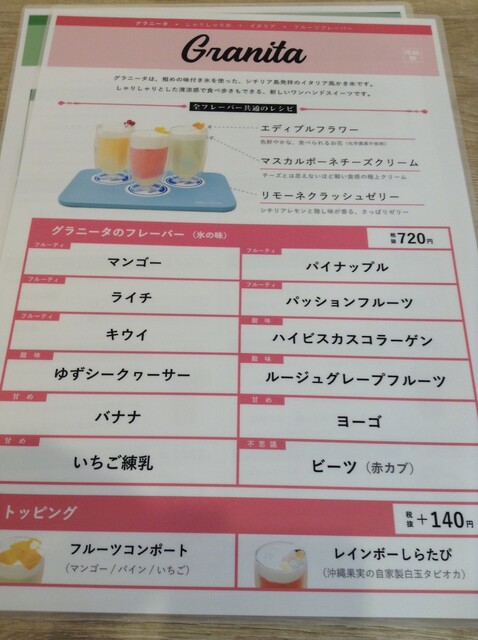 グラニータ × しゃりしゃり氷 × イタリア × フルーツフレーバー
Granita
グラニータは、粗めの味付き氷を使った、シチリア島発祥のイタリア風かき氷です。
しゃりしゃりとした清涼感で食べ歩きもできる、新しいワンハンドスイーツです。
全フレーバー共通のレシピ
エディブルフラワー
色鮮やかな、食べられるお花
マスカルポーネチーズクリーム
チーズとは思えないほど軽い食感の極上クリーム
リモーネクラッシュゼリー
シチリアレモンと隠し味が香る、さっぱりゼリー
グラニータのフレーバー（氷の味）
税抜 720円
フルーティ
マンゴー
フルーティ
パイナップル
フルーティ
ライチ
フルーティ
パッションフルーツ
フルーティ
キウイ
酸味
ハイビスカスコラーゲン
酸味
ゆずシークヮーサー
酸味
ルージュグレープフルーツ
甘め
バナナ
甘め
ヨーゴ
甘め
いちご練乳
不思議
ビーツ（赤カブ）
トッピング
税抜 +140円
フルーツコンポート
（マンゴー / パイン / いちご）
レインボーしらたぴ
（沖縄果実の自家製白玉タピオカ）